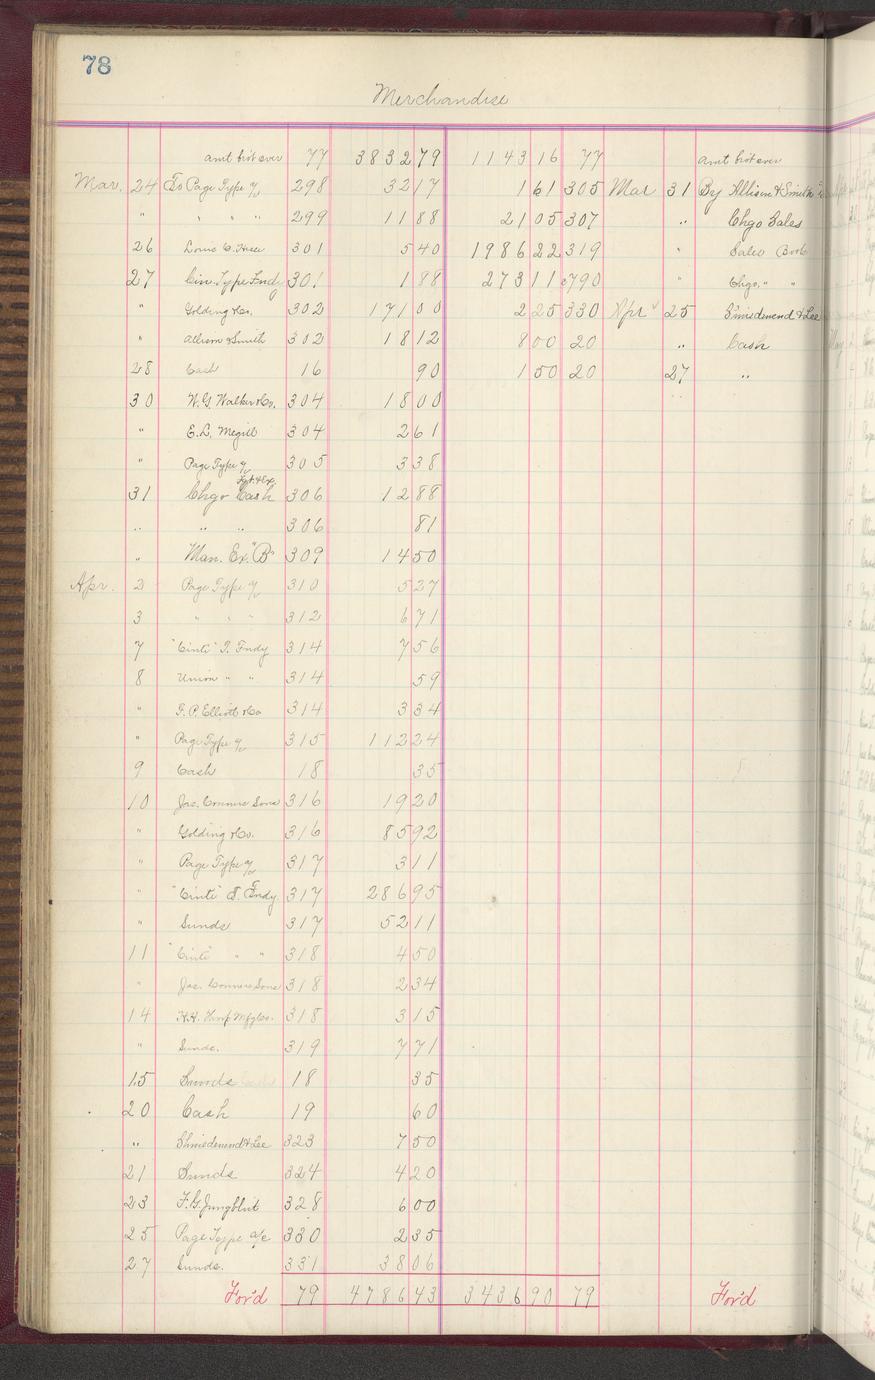 78
Merchandise
amt bro't over 77 3832 79 1143 16 77 amt bro't over
Mar. 24 To Page Type a/c 298 32 17 1 61 305 Mar 31 By Allison & Smith
" " " " 299 11 88 21 05 307 " Chgo Sales
26 Louis C. 301 5 40 1986 22 319 " Sales Book
27 Cin. Type Fndy 301 1 88 273 11 790 " Chgo. " "
" Golding & Co. 302 171 00 2 25 330 Apr 25 Shniedewend & Lee
" Allison & Smith 302 18 12 8 00 20 " Cash
28 Cash 16 90 1 50 20 27 "
30 W. G. Walker & Co. 304 18 00
" E. L. Megill 304 2 61
" Page Type a/c 305 3 38
31 Chgo Cash Frt. & Ex. 306 12 88
" " " 306 81
" Man. Ex. "B" 309 14 50
Apr. 2 Page Type a/c 310 5 27
3 " " " 312 6 71
7 "Cinti" T. Fndy 314 7 56
8 Union " " 314 59
" F. P. Elliott & Co 314 3 34
" Page Type a/c 315 112 24
9 Cash 18 35
10 Jas. Conners Sons 316 19 20
" Golding & Co. 316 85 92
" Page Type a/c 317 3 11
" "Cinti" T. Fndy. 317 286 95
" Sunds 317 52 11
11 "Cinti" " " 318 4 50
" Jas. Conners Sons 318 2 34
14 H. H. Thorp Mfg Co. 318 3 15
" Sunds. 319 7 71
15 Sunds 18 35
20 Cash 19 60
" Shniedewend & Lee 323 7 50
21 Sunds 324 4 20
23 F. G. Jungblut 328 6 00
25 Page Type a/c 330 2 35
27 Sunds. 331 38 06
For'd 79 4786 43 3436 90 79 For'd